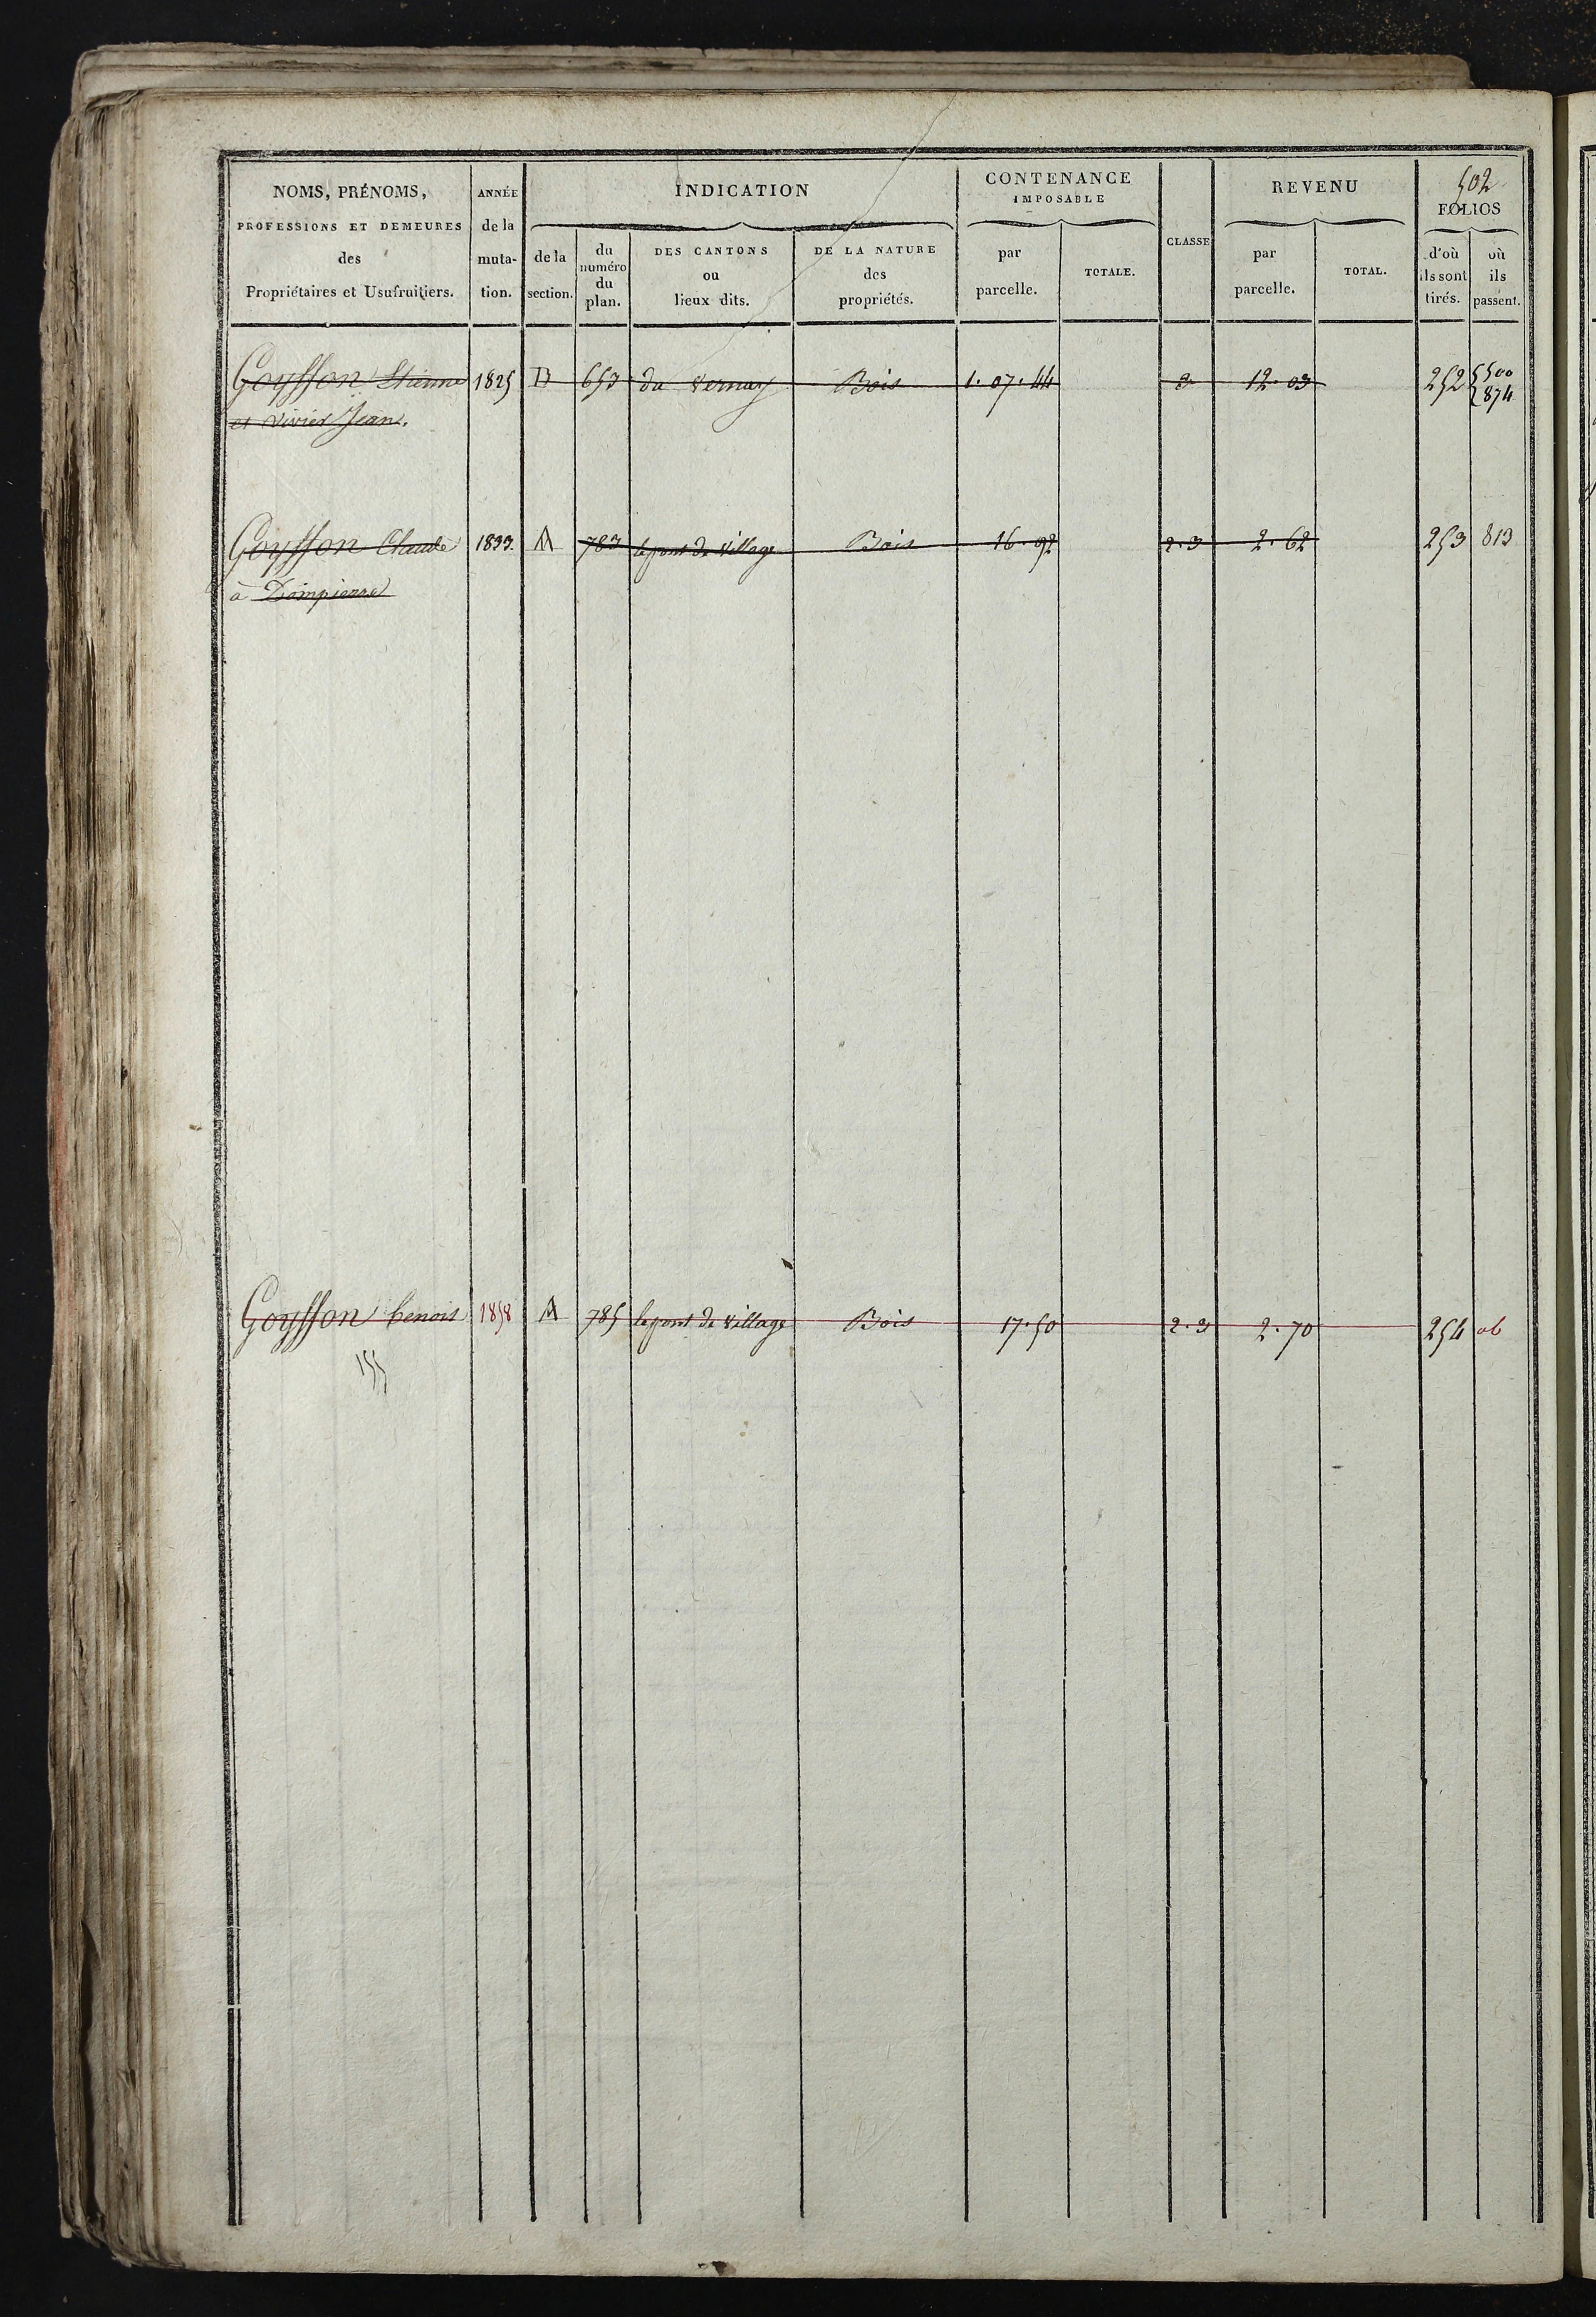 502
NOMS, PRÉNOMS, PROFESSIONS ET DEMEURES des Propriétaires et Usufruitiers.
ANNÉE de la muta- tion.
INDICATION
de la section.
du numéro du plan.
DES CANTONS ou lieux dits.
DE LA NATURE des propriétés.
CONTENANCE IMPOSABLE
par parcelle.
TOTALE.
CLASSE
REVENU
par parcelle.
TOTAL.
FOLIOS
d'où ils sont tirés.
où ils passent.
Goyffon Etienne 1825 D 653 du Vernay Bois 1. 07. 44 3 12. 03 252 500
et Vivier Jean. 874
Goyffon Claude 1833. A 783 le pont de Village Bois 16. 92 2. 3 2. 62 253 813
à Dompierre
Goyffon benoit 1858 A 785 le pont de Village Bois 17. 50 2. 3 2. 70 254 ab